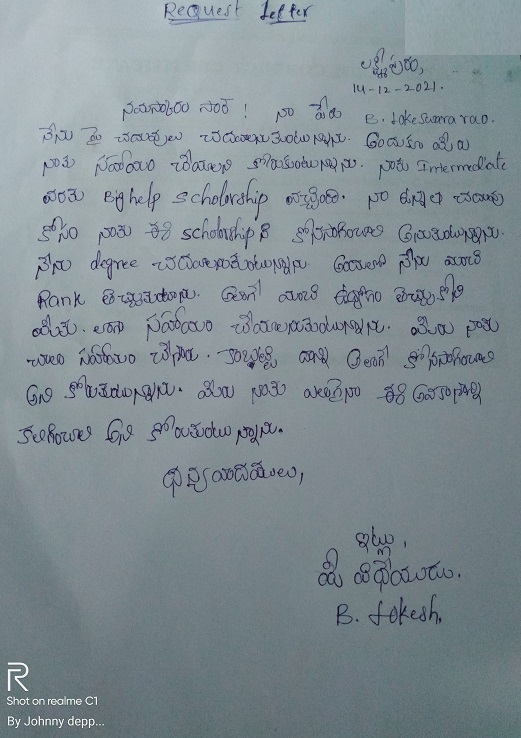 Request Letter
లక్ష్మీపురం,
14-12-2021.
నమస్కారం సార్ ! నా పేరు B. Lokeswara rao.
నేను పై చదువులు చదవాలనుకుంటున్నాను. అందుకు మీరు
నాకు సహాయం చేయాలని కోరుకుంటున్నాను. నాకు Intermediate
వరకు Big help scholorship వచ్చింది. నా ఉన్నత చదువు
కోసం నాకు ఈ scholorship ని కొనసాగించాలి అనుకుంటున్నాను.
నేను degree చదవాలనుకుంటున్నాను. అందులో నేను మంచి
Rank తెచ్చుకుంటాను. అలాగే మంచి ఉద్యోగం తెచ్చుకొని
మీకు లాగా సహాయం చేయాలనుకుంటున్నాను. మీరు నాకు
చాలా సహాయం చేసారు. కాబట్టి దాన్ని అలాగే కొనసాగించాలి
అని కోరుకుంటున్నాను. మీరు నాకు ఎలాగైనా ఈ అవకాశాన్ని
కలిగించాలి అని కోరుకుంటున్నాను.
ధన్యవాదములు,
ఇట్లు,
మీ విధేయుడు.
B. Lokesh.
R
Shot on realme C1
By Johnny depp...